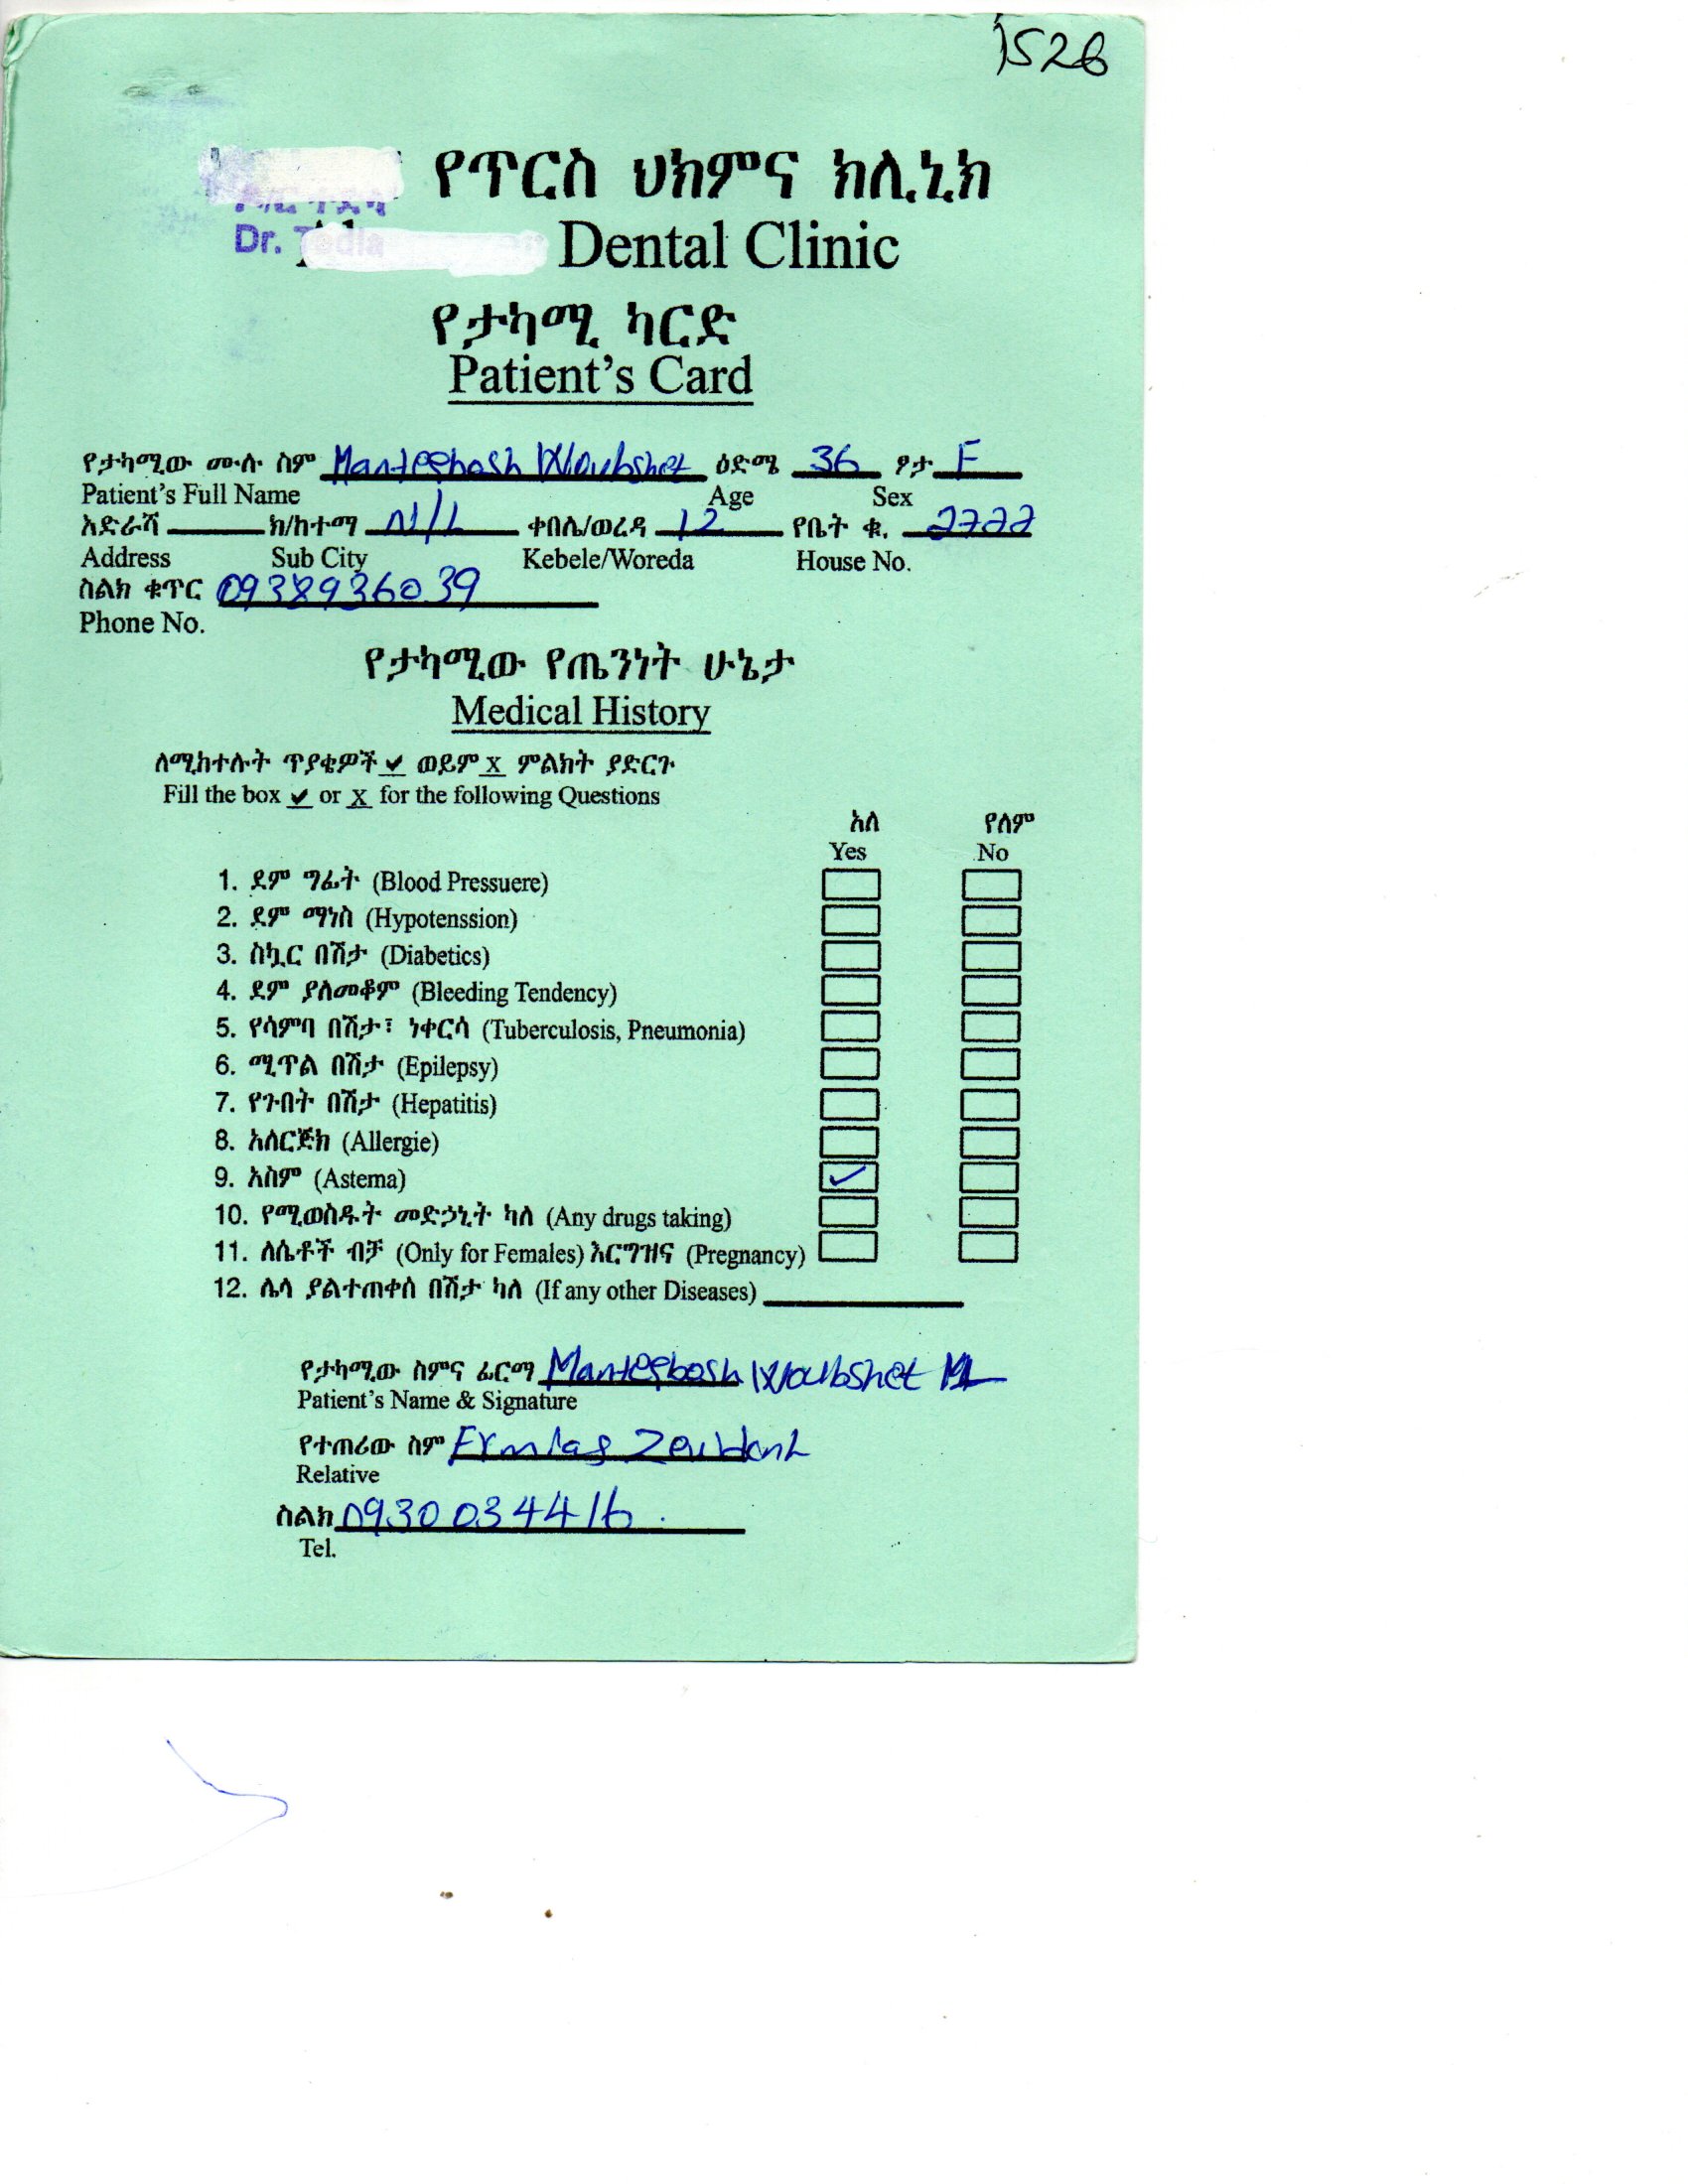 1526
የጥርስ ህክምና ክሊኒክ
Dr. Dental Clinic
የታካሚ ካርድ
Patient's Card
የታካሚው ሙሉ ስም Manteebosh Woubshet ዕድሜ 36 ፆታ F
Patient's Full Name Age Sex
አድራሻ ክ/ከተማ N/L ቀበሌ/ወረዳ 12 የቤት ቁ.
Address Sub City Kebele/Woreda House No.
ስልክ ቁጥር 0938936039
Phone No.
የታካሚው የጤንነት ሁኔታ
Medical History
ለሚከተሉት ጥያቄዎች ✔ ወይም X ምልክት ያድርጉ
Fill the box ✔ or X for the following Questions
አለ የለም
Yes No
1. ደም ግፊት (Blood Pressuere)
2. ደም ማነስ (Hypotenssion)
3. ስኳር በሽታ (Diabetics)
4. ደም ያለመቆም (Bleeding Tendency)
5. የሳምባ በሽታ፣ ነቀርሳ (Tuberculosis, Pneumonia)
6. ሚጥል በሽታ (Epilepsy)
7. የጉበት በሽታ (Hepatitis)
8. አለርጅክ (Allergie)
9. አስም (Astema) ✓
10. የሚወስዱት መድኃኒት ካለ (Any drugs taking)
11. ለሴቶች ብቻ (Only for Females) እርግዝና (Pregnancy)
12. ሌላ ያልተጠቀሰ በሽታ ካለ (If any other Diseases)
የታካሚው ስምና ፊርማ Manteebosh Woubshet
Patient's Name & Signature
የተጠሪው ስም
Relative
ስልክ 0930034416
Tel.